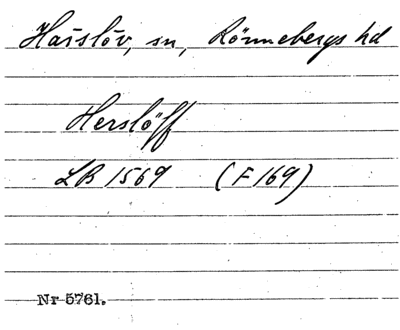 Härslöv, sn, Rönnebergs hd
Herslöff
LB 1569 (F 169)
Nr 5761.